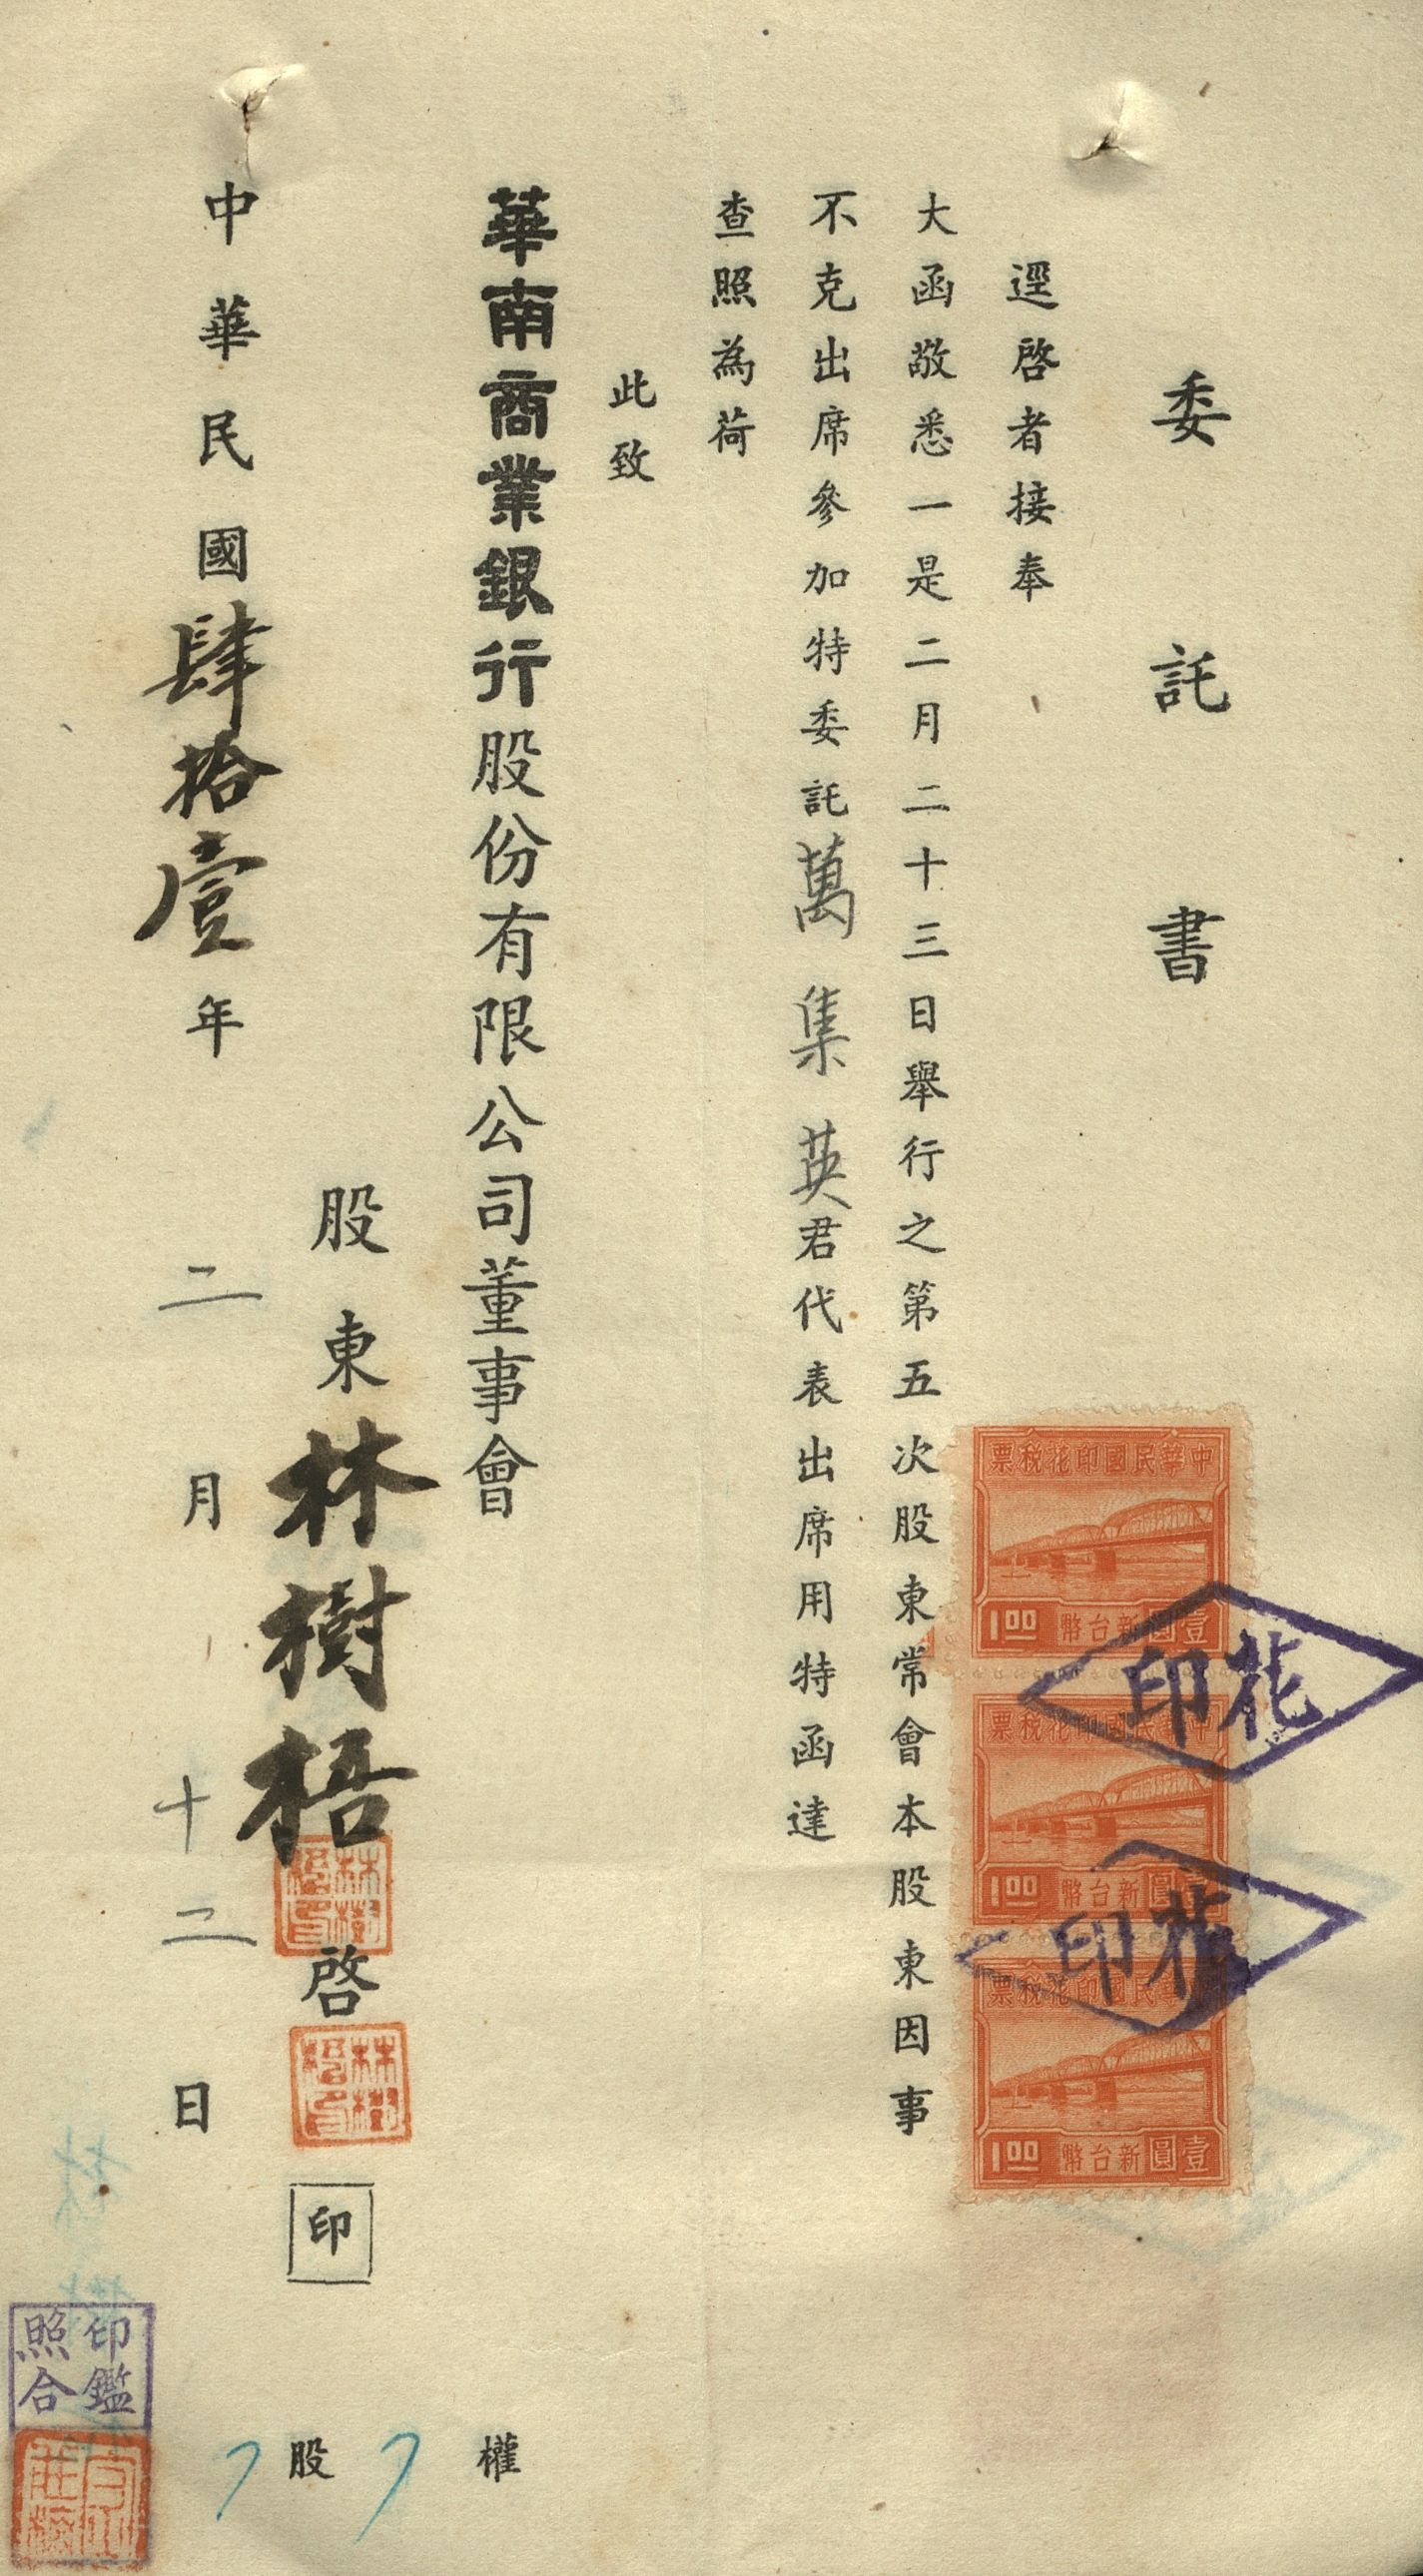 委託書
逕啓者接奉
大函敬悉一是二月二十三日舉行之第五次股東常會本股東因事
不克出席參加特委託萬集英君代表出席用特函達
查照為荷
此致
華南商業銀行股份有限公司董事會
股東林樹梧啓 印
中華民國肆拾壹年二月十二日
權
股
中華民國印花稅票
1.00 新台幣壹圓
中華民國印花稅票
1.00 新台幣壹圓
中華民國印花稅票
1.00 新台幣壹圓
花印
花印
林樹梧印
林樹梧印
印鑑照合